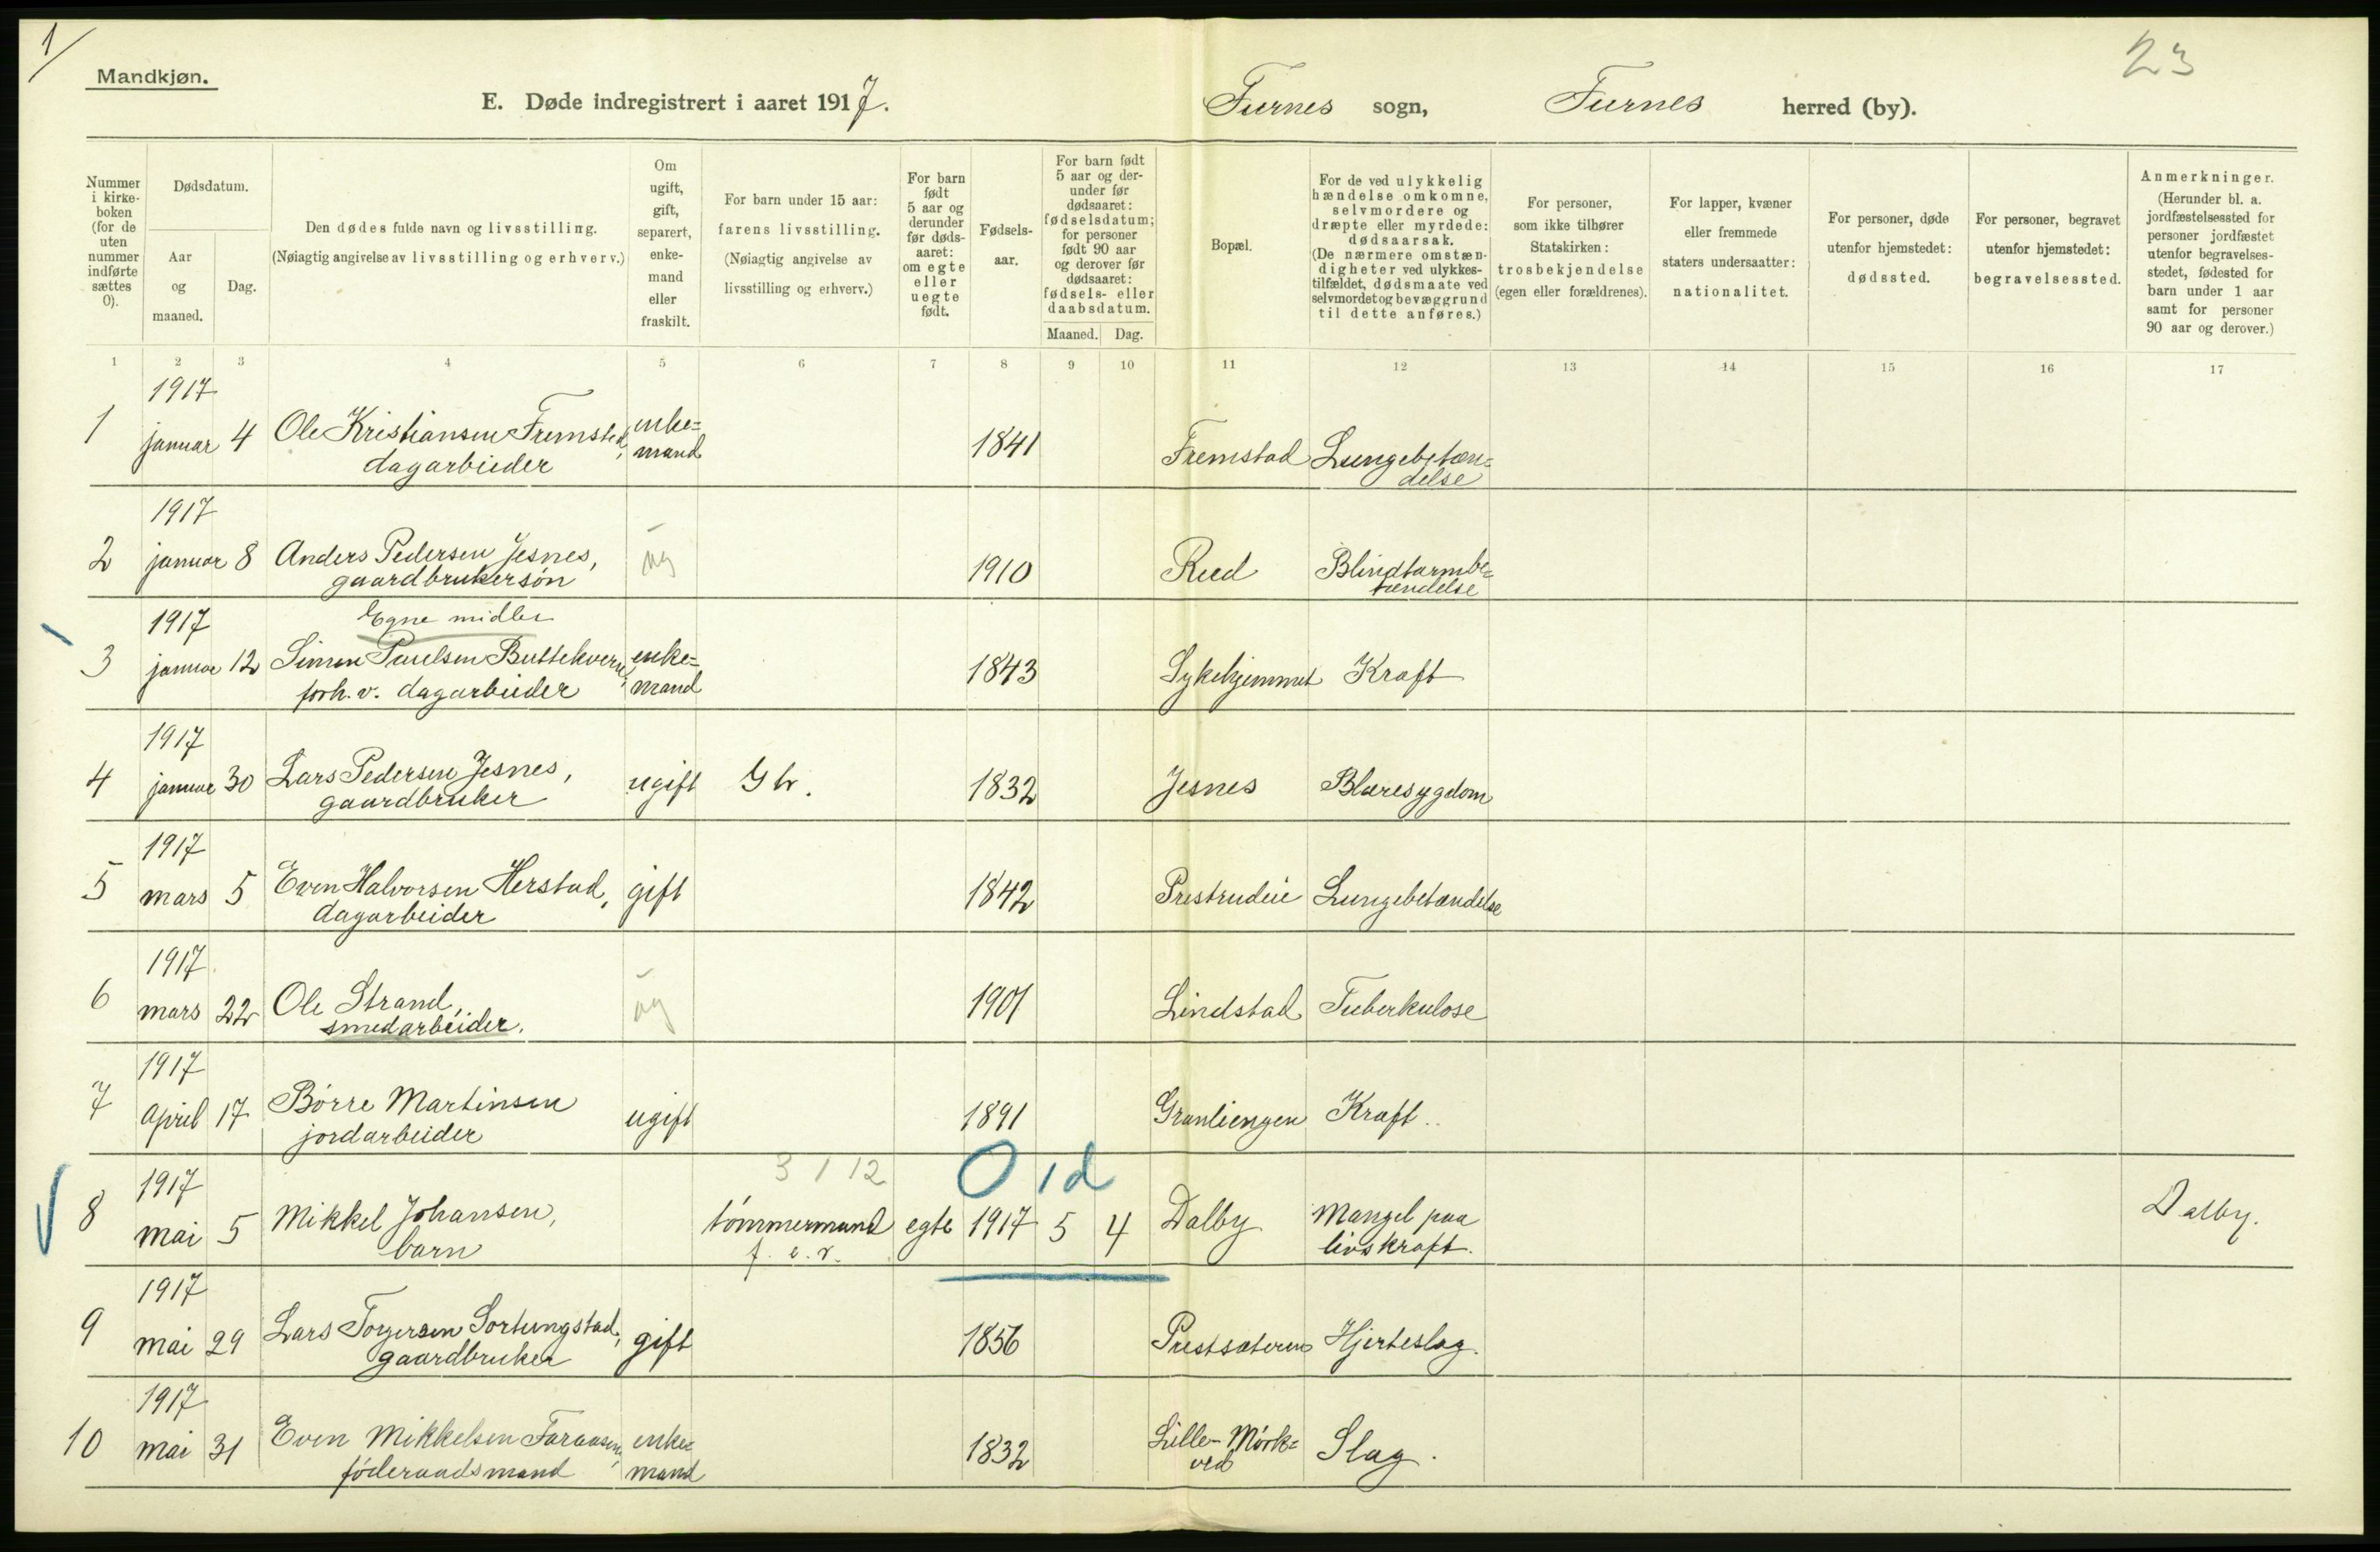 1/
Mandkjøn.
23
E. Døde indregistrert i aaret 1917. Furnes sogn, Furnes herred (by).
Nummer i kirke-boken (for de uten nummer indførte sættes 0).
Dødsdatum.
Aar og maaned.
Dag.
Den dødes fulde navn og livsstilling.
(Nøiagtig angivelse av livsstilling og erhverv.)
Om ugift, gift, separert, enke-mand eller fraskilt.
For barn under 15 aar: farens livsstilling. (Nøiagtig angivelse av livsstilling og erhverv.)
For barn født 5 aar og derunder før døds-aaret: om egte eller uegte født.
Fødsels-aar.
For barn født 5 aar og der-under før dødsaaret: fødselsdatum; for personer født 90 aar og derover før dødsaaret: fødsels- eller daabsdatum.
Maaned. Dag.
Bopæl.
For de ved ulykkelig hændelse omkomne, selvmordere og dræpte eller myrdede: dødsaarsak. (De nærmere omstæn-digheter ved ulykkes-tilfældet, dødsmaate ved selvmordet og bevæggrund til dette anføres.)
For personer, som ikke tilhører Statskirken: trosbekjendelse (egen eller forældrenes).
For lapper, kvæner eller fremmede staters undersaatter: nationalitet.
For personer, døde utenfor hjemstedet: dødssted.
For personer, begravet utenfor hjemstedet: begravelsessted.
Anmerkninger. (Herunder bl. a. jordfæstelsessted for personer jordfæstet utenfor begravelses-stedet, fødested for barn under 1 aar samt for personer 90 aar og derover.)
1 2 3 4 5 6 7 8 9 10 11 12 13 14 15 16 17
1917
1 januar 4 Ole Kristiansen Fremstad, enke= 1841 Fremstad Lungebetæn=
dagarbeider mand delse
1917
2 januar 8 Anders Pedersen Jesnes, ug 1910 Rud Blindtarmbe=
gaardbrukersøn tændelse
1917 Egne midler
3 januar 12 Simen Paulsen Buttekvern, enke= 1843 Sykehjemmet Kræft
forh. v. dagarbeider mand
1917
4 januar 30 Lars Pedersen Jesnes, ugift Gbr. 1832 Jesnes Blæresygdom
gaardbruker
1917
5 mars 5 Even Halvorsen Herstad, gift 1842 Prestrudeie Lungebetændelse
dagarbeider
1917
6 mars 22 Ole Strand, ug 1901 Lindstad Tuberkulose
smedarbeider.
1917
7 April 17 Børre Martinsen ugift 1891 Granliengen Kræft..
jordarbeider
3 1 12 0 1d
1917
8 mai 5 Mikkel Johansen, tømmermand egte 1917 5 4 Dalby Mangel paa Dalby.
barn f. e. r. livskraft.
1917
9 mai 29 Lars Torgersen Sortungstad, gift 1856 Prestsæteren Hjerteslag.
gaardbruker
1917
10 mai 31 Even Mikkelsen Faraasen, enke= 1832 Lille-Mørk= Slag.
føderaadsmand mand ved